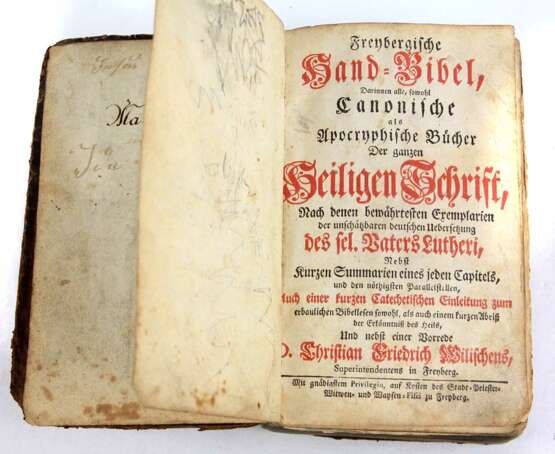 Ma
Freybergische
Hand-Bibel,
Darinnen alle, sowohl
Canonische
als
Apocryphische Bücher
Der ganzen
Heiligen Schrift,
Nach denen bewährtesten Exemplarien
der unschätzbaren deutschen Uebersetzung
des sel. Vaters Lutheri,
Nebst
Kurzen Summarien eines jeden Capitels,
und den nöthigsten Parallelstellen,
Auch einer kurzen Catechetischen Einleitung zum
erbaulichen Bibellesen sowohl, als auch einem kurzen Abriß
der Erkänntniß des Heils,
Und nebst einer Vorrede
D. Christian Friedrich Wilischens,
Superintendentens in Freyberg.
Mit gnädigstem Privilegio, auf Kosten des Stadt-Priester-
Wittwen- und Waysen-Fisci zu Freyberg.